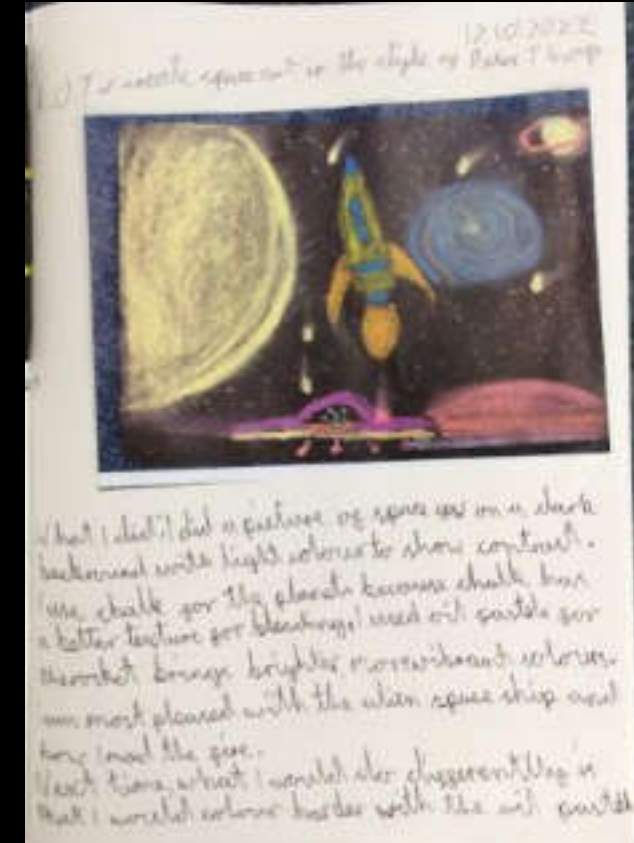 12.10.2022
space art in the style of Peter Thorpe
What I did: I did a picture of space on a dark
background with light colours to show contrast.
I use chalk for the planets because chalk has
a better texture for blending. I used oil pastels for
the rocket brings brighter more vibrant colours.
am most pleased with the alien space ship and
how I mad the fire.
Next time, what I would do differently is
that I would colour harder with the oil pastels